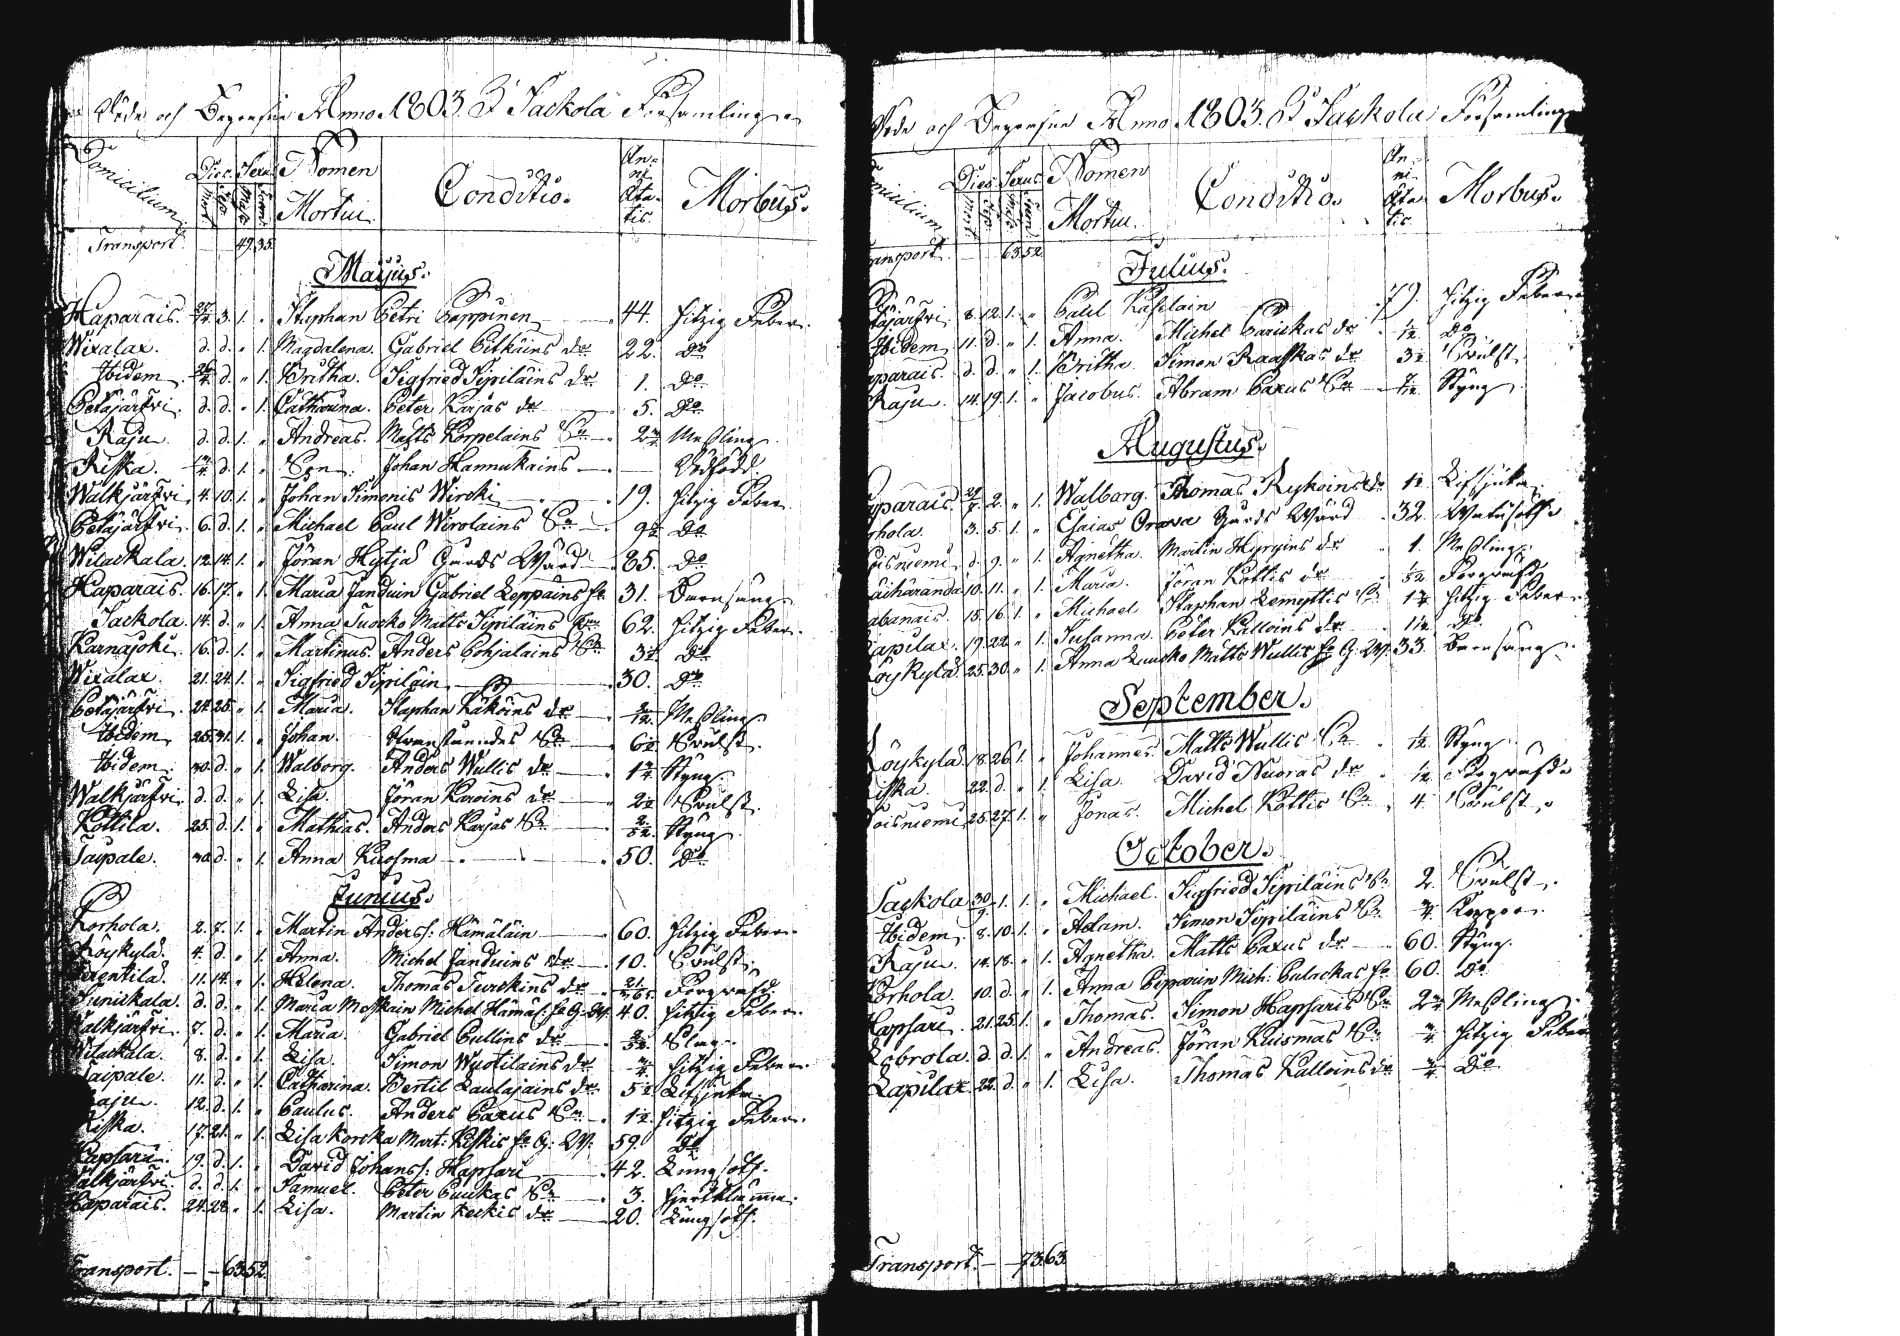 Döde och Begrafne Anno 1803. I Sackola Församling
Domicilium Dies Sexus Nomen Mortui Conditio. Anni Ætatis. Morbus.
Mort. Sep. Masc. Foem.
Transport — — 49. 35.
Maijus.
Haparais. 27/4. 3. 1. " Stephan Petri Pappinen 44. Hitzig Feber.
Wixalax. d. d. " 1. Magdalena. Gabriel Pitkäins dr 22. Do
Ibidem d. " 1. Britha. Sigfried Sipiläins dr 1. Do
Petäjärfvi. d. d. " 1. Catharina. Peter Karjas dr 5. Do
Raju. d. d. 1. " Andreas. Matts Korpelains Sn 2 3/4 Meßling
Riska. d. 1. " Sn. Johan Hannukains — Dödfödd
Walkjärfvi. 4. 10. 1. " Johan Simonis Wirolai 19. Hitzig Feber
Petäjärfvi. 6. d. 1. " Michael Paul Wirolains Sn 9 1/2 Do
Wilackala. 12. 14. 1. " Jöran Hytjä Gårds Wärd 85. Do
Haparais. 16. 17. " 1. Maria Janduin Gabriel Leppäins hu 31. Barnsäng
Sackola. 14. d. " 1. Anna Tuocko Matts Sipiläins 62. Hitzig Feber.
Karnajoki. 16. d. 1. " Martinus. Anders Pohjalains Sn 3 1/2 Do
Wixalax. 21. 24. 1. " Sigfried Sipiläin 30. Do
Petäjärfvi. 24. 25. " 1. Maria. Staphan Käköins dr 2/12. Meßling
Ibidem. 25. 31. 1. " Johan. Sn 6 1/2 Svulst.
Ibidem. 30. d. " 1. Walborg. Anders Wullis dr 1 3/4 Styng
Walkjärfvi. d. d. " 1. Lisa. Jöran Karoins dr 2 1/2 Svulst.
Kottila. 25. d. 1. " Mathias. Anders Karjas Sn 2/52. Styng
Taipale. 30. d. " 1. Anna Kuosma 50. Do
Junius.
Korhola. 2. 7. 1. " Martin Anders: Hämäläin 60. Hitzig Feber.
Köykylä. 4. d. " 1. Anna. Michel Janduins dr 10. Svulst.
11. 14. " 1. Helena. Thomas Turckins dr 21/365.
Sunickala. d. d. " 1. Maria Moskain Michel Hämäl: hu G. W. 40. Hitzig Feber
Walkjärfvi. 7. d. " 1. Maria. Gabriel Pullins dr Slag.
Wilackala. 8. d. " 1. Lisa. Simon Wuotilains dr 3/4 Hitzig Feber.
Taipale. 11. d. " 1. Catharina. Bertil Laulajains dr 5 1/2
Raju. 12. d. 1. " Paulus. Anders Paxus Sn 1 1/2 Hitzig Feber.
Riska. 17. 21. " 1. Lisa Korcka Mart: Kiskis hu G: W: 59. Do
Hapsari. 19. d. 1. " David Johans: Hapsari 42. Lungsot.
Walkjärfvi. d. d. 1. " Samuel. Peter Puukas Sn 3.
Haparais. 24. 28. " 1. Lisa. Martin Keckis dr 20. Lungsot.
Transport. — — 63. 52.
Döde och Begrafne Anno 1803. I Sackola Församling
Domicilium Dies Sexus Nomen Mortui. Conditio. Anni Ætatis Morbus.
Mort. Sep. Masc. Foem.
Transport — — 63. 52.
Julius.
Petäjärfvi. 8. 12. 1. " Påhl Käpläin 79. Hitzig Feber
Ibidem. 11. d. " 1. Anna. Michel Parickas dr 1/12 Do
Haparais. d. d. " 1. Britha. Simon Raaskas dr 3 1/2 Svulst
Raju. 14. 19. 1. " Jacobus. Abram Paxus Sn 7/12 Styng
Augustus.
Haparais. 29/7. 2. " 1. Walborg. Thomas Ryköins dr 1 1/2
Korhola. 3. 5. 1. " Esaias Orava Gårds Wärd 32. Watusot
Noisniemi. d. 9. " 1. Agnetha. Martin Hyrgins dr 1. Meßling
10. 11. " 1. Maria. Jöran Kottis dr 1/52
15. 16. 1. " Michael Staphan Lemettis Sn Hitzig Feber
Lapilax. 19. 22. " 1. Susanna. Peter Kalloins dr Do
Köykylä. 25. 30. " 1. Anna Luucko Matts Wullis hu G. W. 33. Barnsäng
September.
Köykylä. 18. 26. 1. " Johannes. Matts Wullis Sn 1/12 Styng
Riska. 22. d. " 1. Lisa. David Nuoras dr 1/12
Noisniemi. 25. 27. 1. " Jonas. Michel Kottis Sn 4. Svulst
October.
Sackola 30/9. 1. 1. " Michael. Sigfried Sipiläins Sn 2. Svulst.
Ibidem. 8. 10. 1. " Adam. Simon Sipiläins Sn 3/4 Koppor.
Raju. 14. 18. " 1. Agnetha. Matts Paxus dr 60. Styng.
Korhola. 10. d. " 1. Anna Peparin Mich: Pulackas hu 60. Do
Hapsari. 21. 25. 1. " Thomas. Simon Hapsaris Sn 2 3/4 Meßling.
Lobrola. d. d. 1. " Andreas. Jöran Kuismas Sn 3/4 Hitzig Feber
Lapilax. 22. d. " 1. Lisa. Thomas Kalloins dr 3/4 Do
Transport. — — 73. 63.